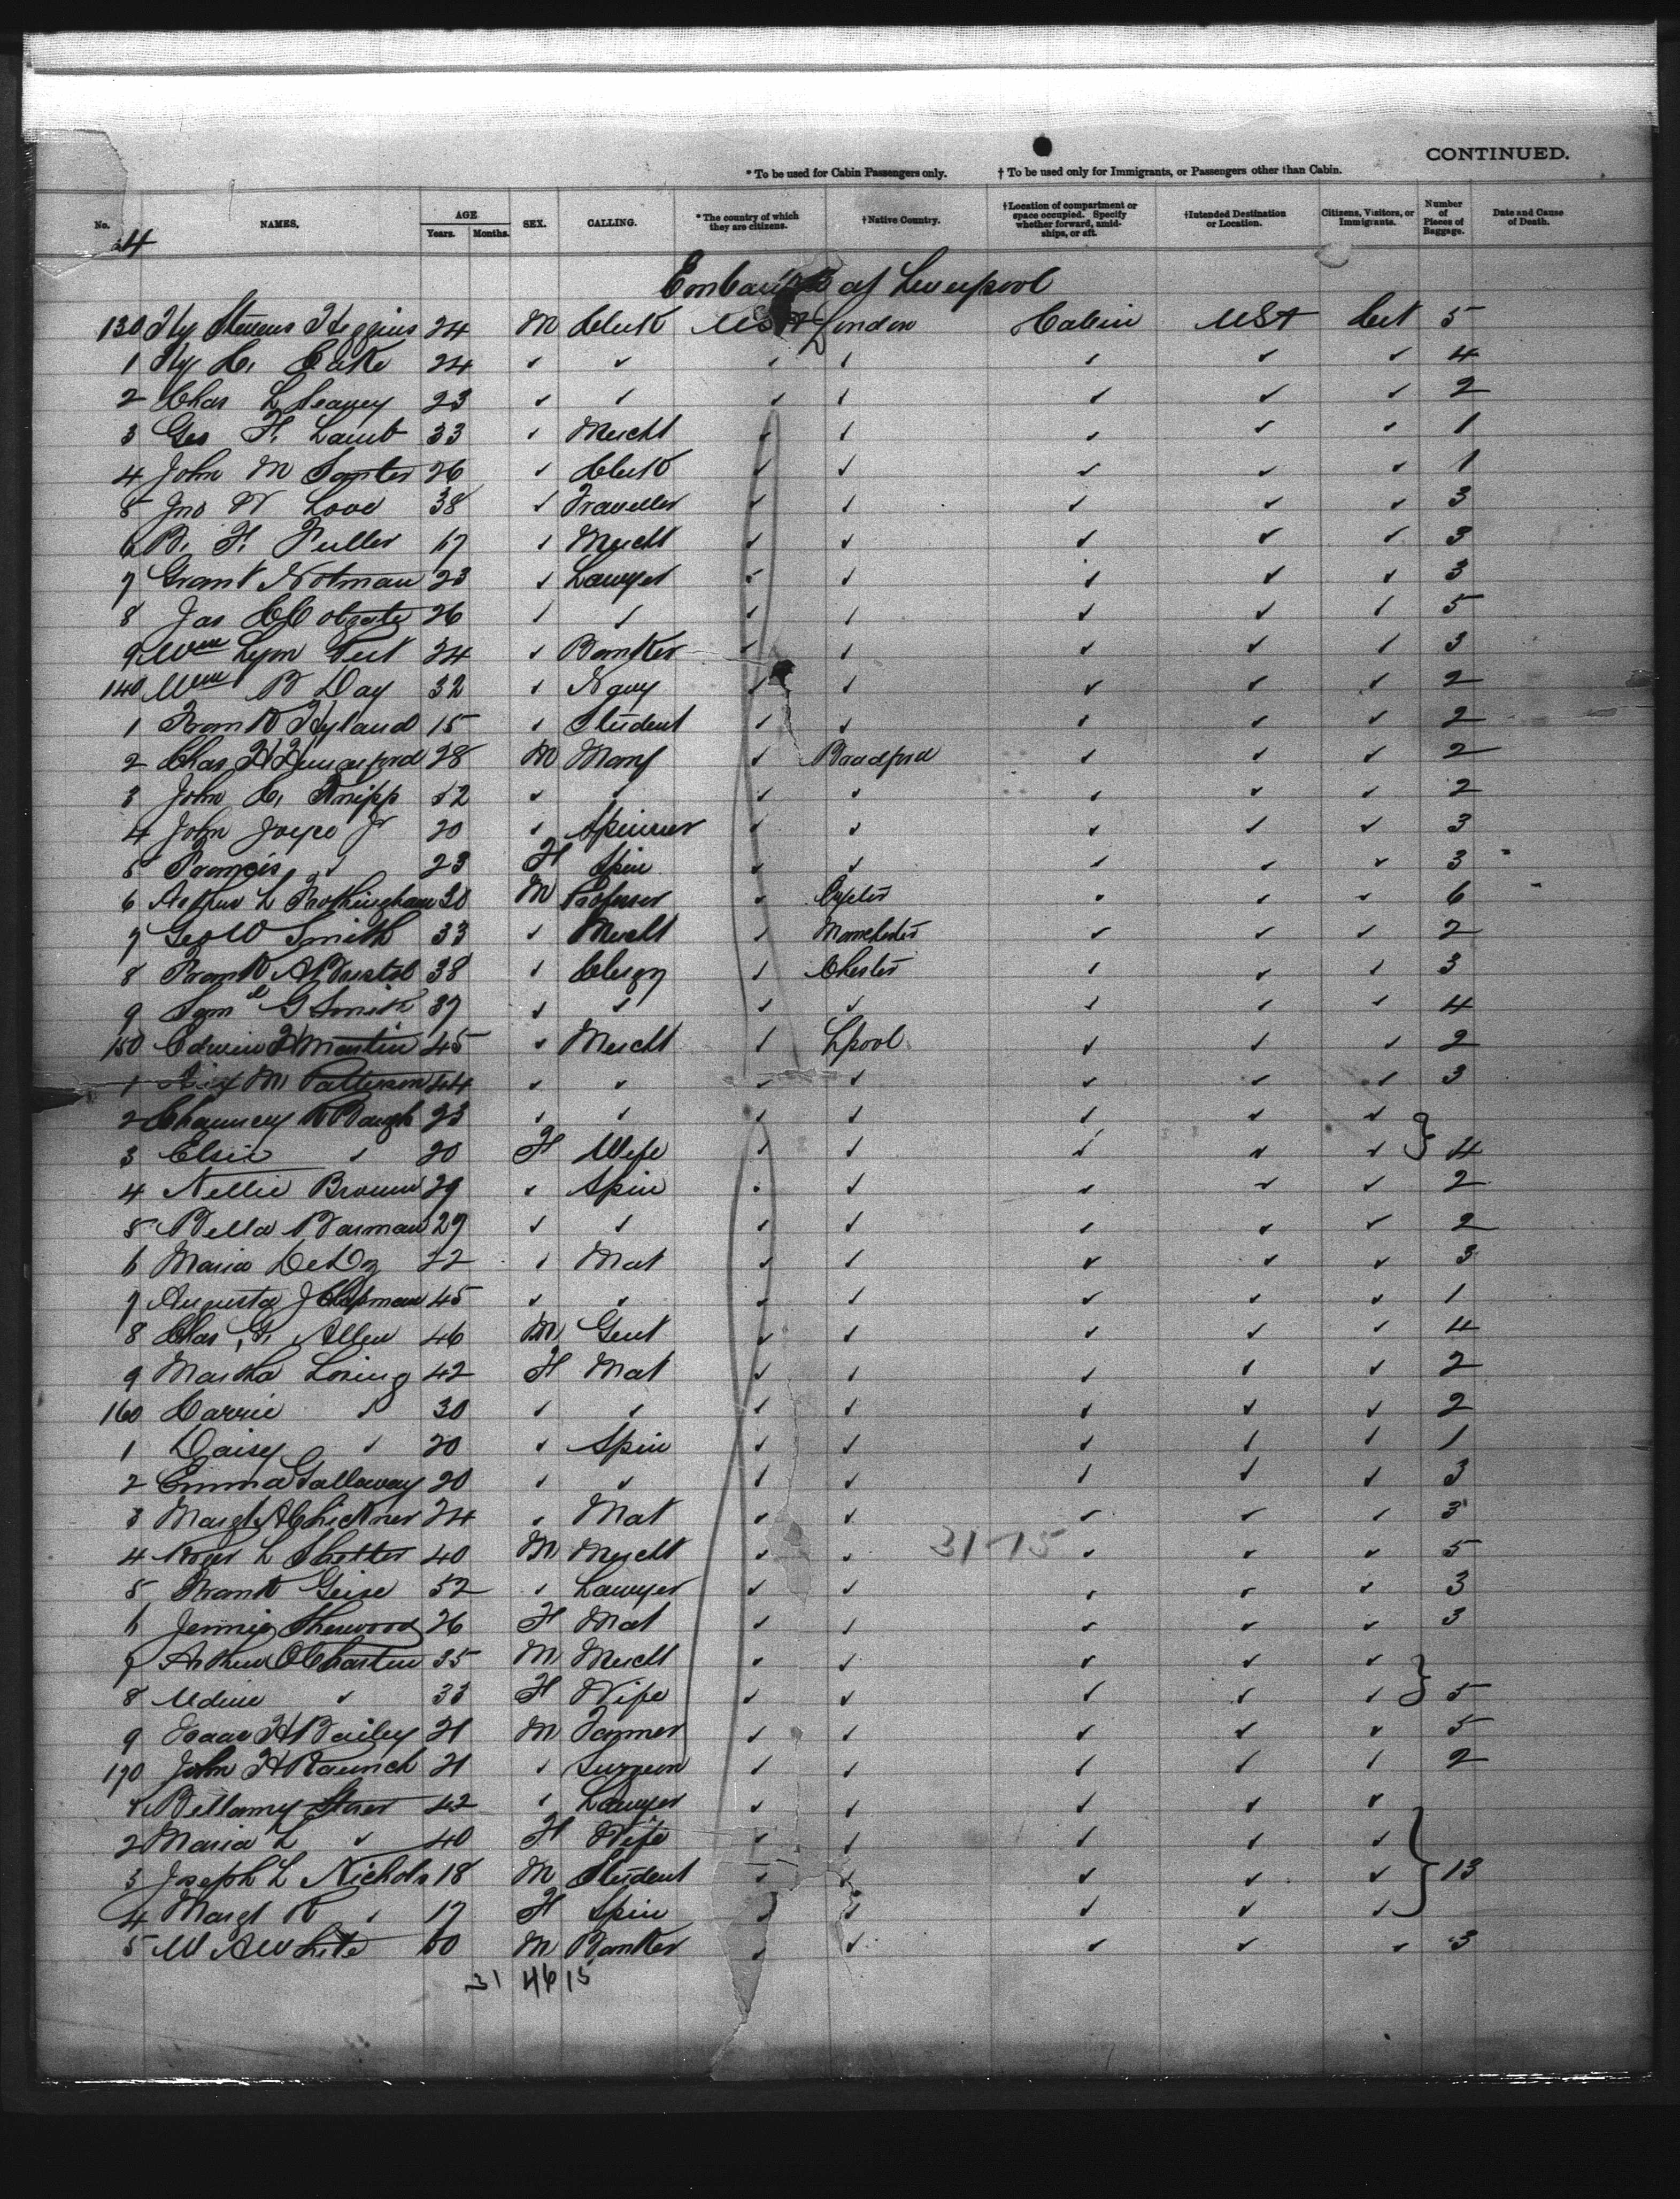 CONTINUED.
* To be used for Cabin Passengers only. † To be used only for Immigrants, or Passengers other than Cabin.
No. NAMES. AGE Years. Months. SEX. CALLING. * The country of which they are citizens. † Native Country. † Location of compartment or space occupied. Specify whether forward, amidships, or aft. † Intended Destination or Location. Citizens, Visitors, or Immigrants. Number of Pieces of Baggage. Date and Cause of Death.
Embarked at Liverpool
130 Hy Stevens Higgins 24 M Clerk USA London Cabin USA Cit 5
1 Hy C. 24 ✓ ✓ ✓ ✓ ✓ ✓ ✓ 4
2 Chas L Seavey 23 ✓ ✓ ✓ ✓ ✓ ✓ ✓ 2
3 Geo F. Lamb 33 ✓ Mercht ✓ ✓ ✓ ✓ ✓ 1
4 John M 26 ✓ Clerk ✓ ✓ ✓ ✓ ✓ 1
5 Jno W Love 38 ✓ Traveller ✓ ✓ ✓ ✓ ✓ 3
6 B. F. Fuller ✓ Mercht ✓ ✓ ✓ ✓ ✓ 3
7 Grant Notman 23 ✓ Lawyer ✓ ✓ ✓ ✓ ✓ 3
8 Jas C Colgate 26 ✓ ✓ ✓ ✓ ✓ ✓ ✓ 5
9 Wm Lyon 24 ✓ Banker ✓ ✓ ✓ ✓ ✓ 3
140 Wm B Day 32 ✓ Navy ✓ ✓ ✓ ✓ ✓ 2
1 Frank Hyland 15 ✓ Student ✓ ✓ ✓ ✓ ✓ 2
2 Chas H Hungerford 28 M Manf ✓ Bradford ✓ ✓ ✓ 2
3 John C. Knipp 52 ✓ ✓ ✓ ✓ ✓ ✓ ✓ 2
4 John Joyce Jr 20 ✓ Spinner ✓ ✓ ✓ ✓ ✓ 3
5 Francis ✓ 23 F Spin ✓ ✓ ✓ ✓ ✓ 3
6 Arthur L Frothingham 30 M Professor ✓ Oxford ✓ ✓ ✓ 6
7 Geo W Smith 33 ✓ Mercht ✓ Manchester ✓ ✓ ✓ 2
8 Frank A Bristol 38 ✓ Clergy ✓ Chester ✓ ✓ ✓ 3
9 Saml G Smith 37 ✓ ✓ ✓ ✓ ✓ ✓ ✓ 4
150 Edwin F Martin 45 ✓ Mercht ✓ Lpool ✓ ✓ ✓ 2
1 Alex M Patterson 44 ✓ ✓ ✓ ✓ ✓ ✓ ✓ 3
2 Chauncey R Baugh 23 ✓ ✓ ✓ ✓ ✓ ✓ ✓
3 Elsie ✓ 20 F Wife ✓ ✓ ✓ ✓ ✓ 4
4 Nellie Brown 29 ✓ Spin ✓ ✓ ✓ ✓ ✓ 2
5 Bella Barman 27 ✓ ✓ ✓ ✓ ✓ ✓ ✓ 2
6 Maria 22 ✓ Mat ✓ ✓ ✓ ✓ ✓ 3
7 Augusta J Chapman 45 ✓ ✓ ✓ ✓ ✓ ✓ ✓ 1
8 Chas G. Allen 46 M Gent ✓ ✓ ✓ ✓ ✓ 4
9 Martha Loring 42 F Mat ✓ ✓ ✓ ✓ ✓ 2
160 Carrie ✓ 30 ✓ ✓ ✓ ✓ ✓ ✓ ✓ 2
1 Daisy ✓ 20 ✓ Spin ✓ ✓ ✓ ✓ ✓ 1
2 Emma Gallaway 20 ✓ ✓ ✓ ✓ ✓ ✓ ✓ 3
3 Margt A 24 ✓ Mat ✓ ✓ ✓ ✓ ✓ 3
4 Roger L Shetter 40 M Mercht ✓ ✓ 31-15 ✓ ✓ ✓ 5
5 Frank Geise 52 ✓ Lawyer ✓ ✓ ✓ ✓ ✓ 3
6 Jennie Sherwood 26 F Mat ✓ ✓ ✓ ✓ ✓ 3
7 Arthur 35 M Mercht ✓ ✓ ✓ ✓ ✓
8 ✓ 33 F Wife ✓ ✓ ✓ ✓ ✓ 5
9 Isaac H Bailey 21 M Farmer ✓ ✓ ✓ ✓ ✓ 5
170 John H Raunch 21 ✓ Surgeon ✓ ✓ ✓ ✓ ✓ 2
1 Bellamy Storer 42 ✓ Lawyer ✓ ✓ ✓ ✓ ✓
2 Maria L ✓ 40 F Wife ✓ ✓ ✓ ✓ ✓
3 Joseph L Nichols 18 M Student ✓ ✓ ✓ ✓ ✓ 13
4 Margt R ✓ 17 F Spin ✓ ✓ ✓ ✓ ✓
5 W A White M Banker ✓ ✓ ✓ ✓ ✓ 3
31 46 15